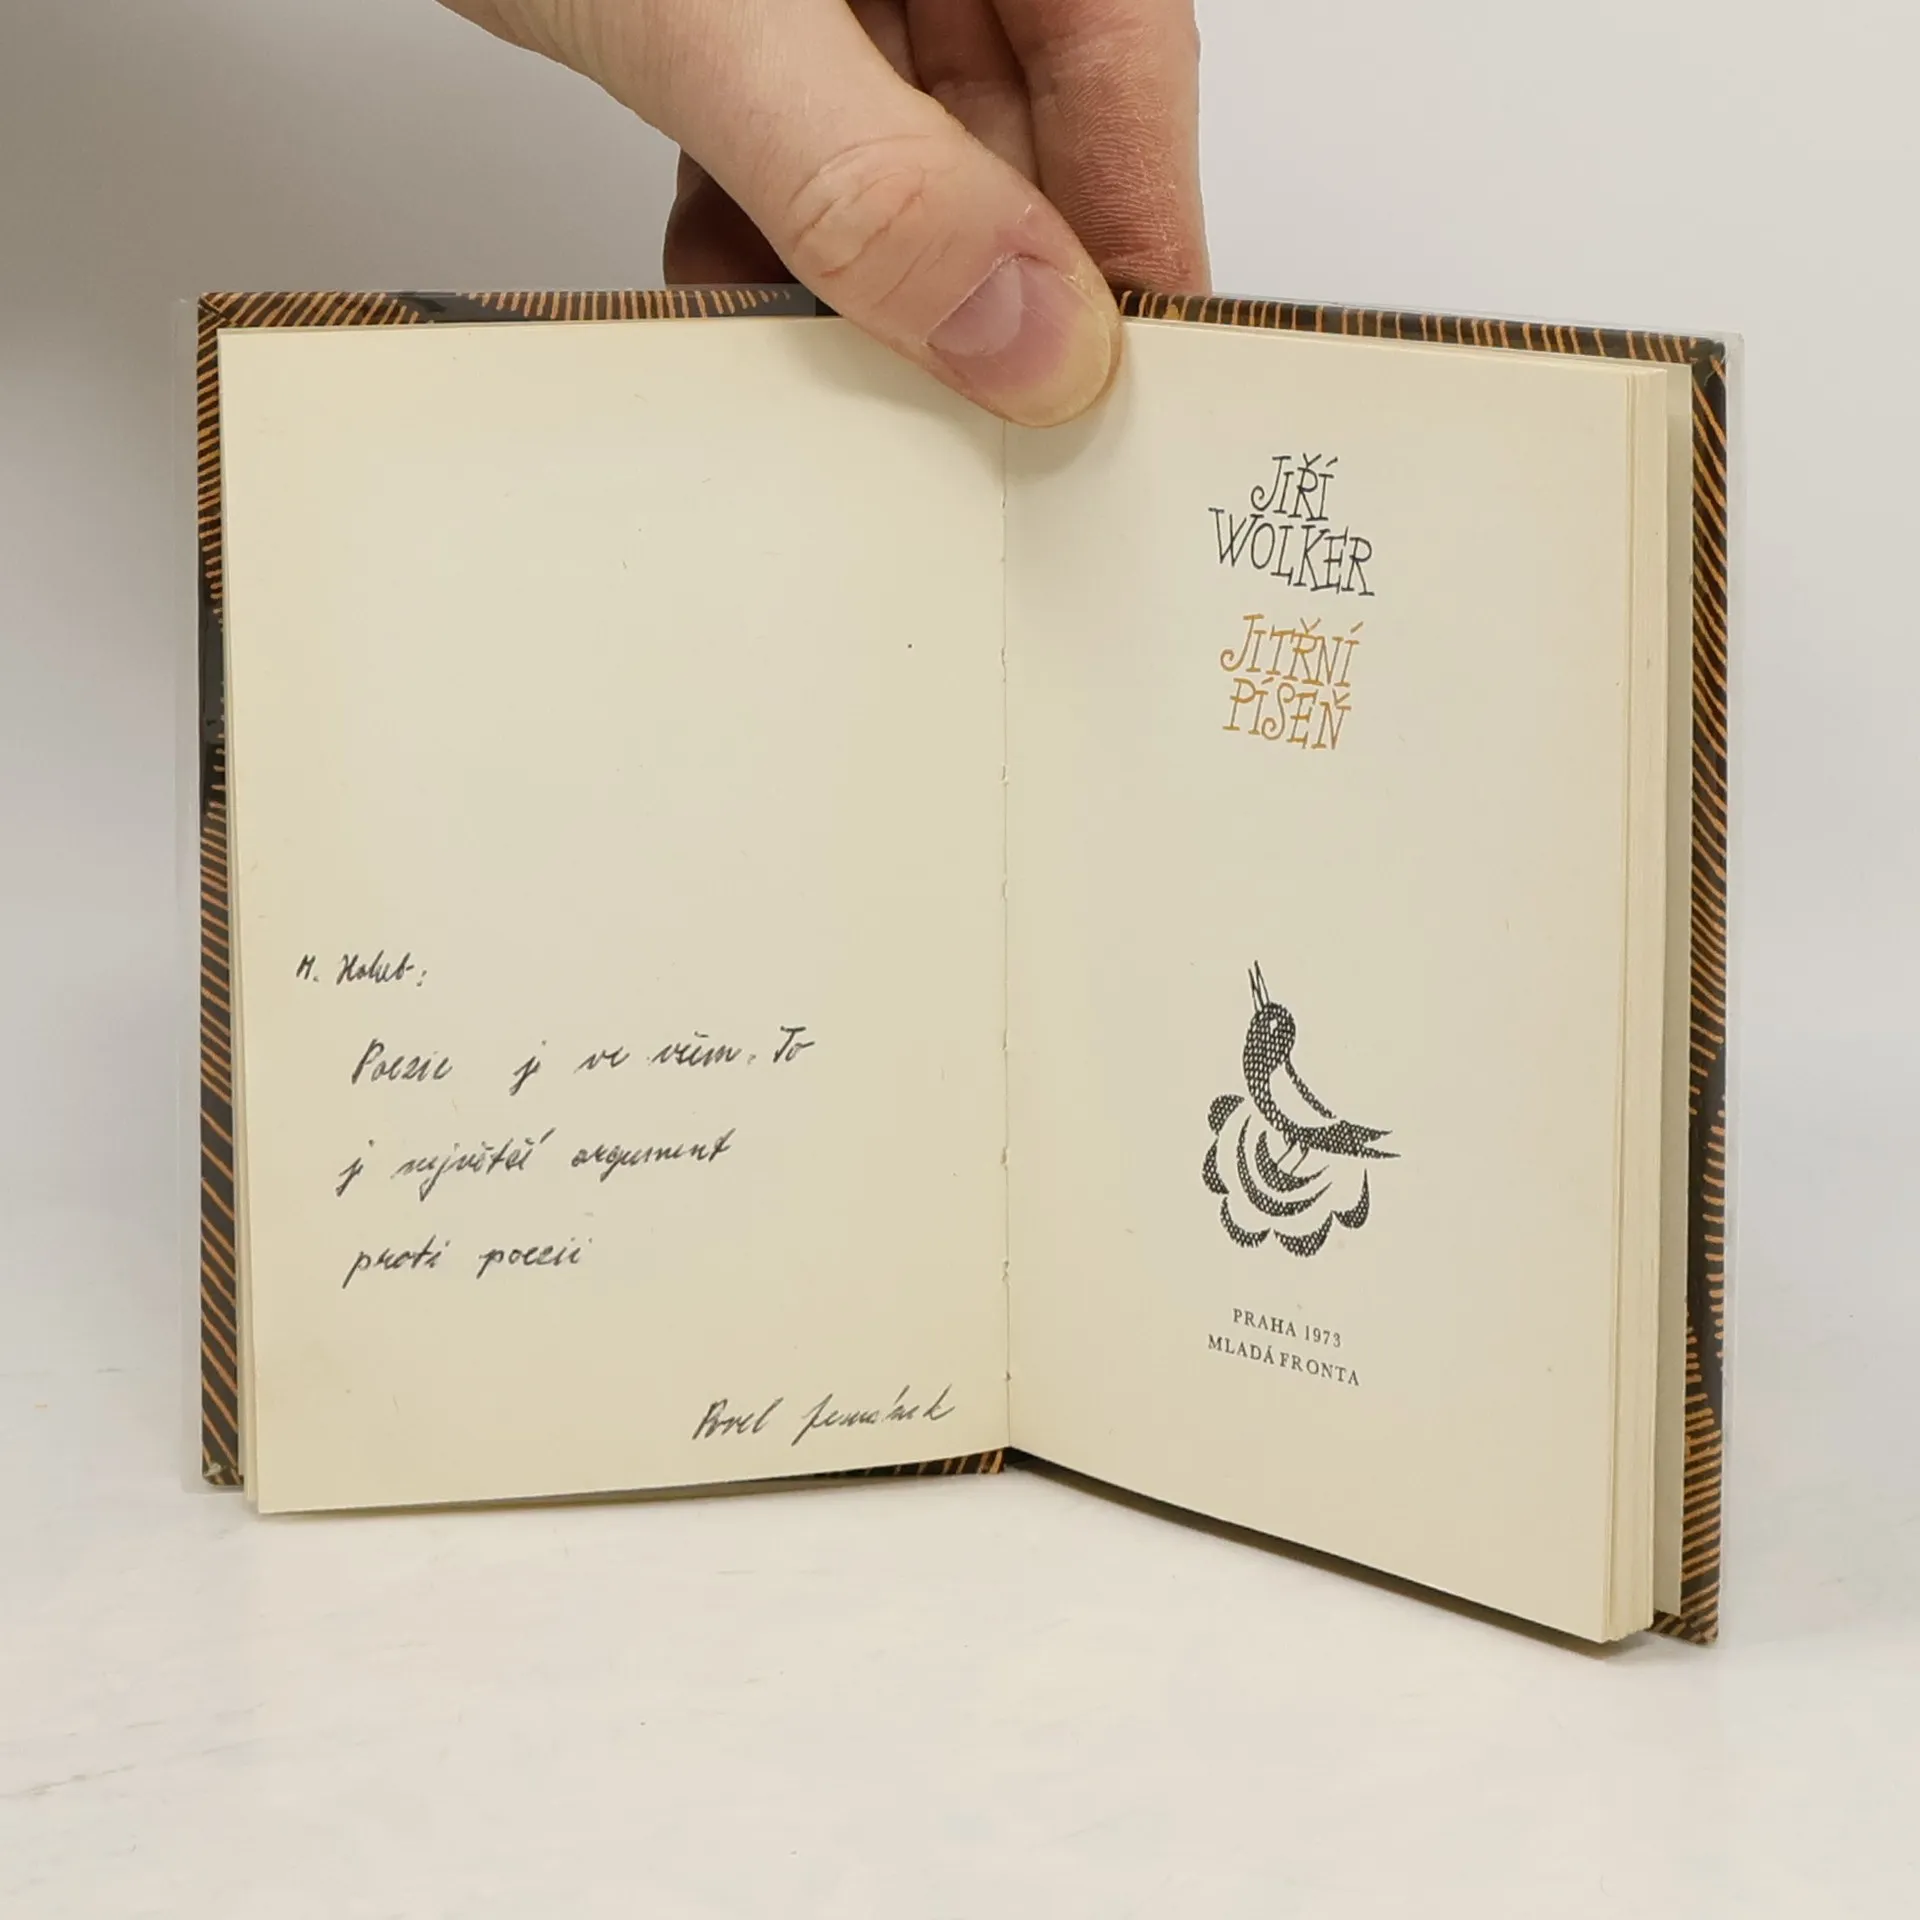 M. Holub:
Poezie je ve všem. To
je největší argument
proti poezii
Pavel
JIŘÍ
WOLKER
JITŘNÍ
PÍSEŇ
PRAHA 1973
MLADÁ FRONTA